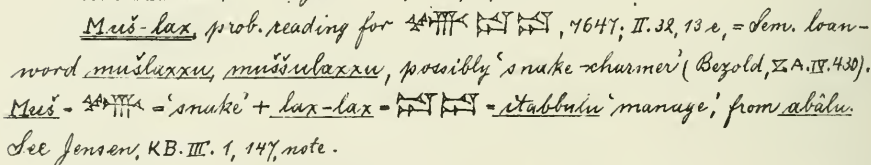 Muš-lax, prob. reading for 𒈲 𒁻 𒁻, 7647; II. 32, 13 e, = Sem. loan-
word mušlaxxu, muššulaxxu, possibly 'snake-charmer' (Bezold, ZA. IV. 430).
Muš = 𒈲 = 'snake' + lax-lax = 𒁻 𒁻 = itabbulu 'manage,' from abâlu.
See Jensen, KB. III. 1, 147, note.